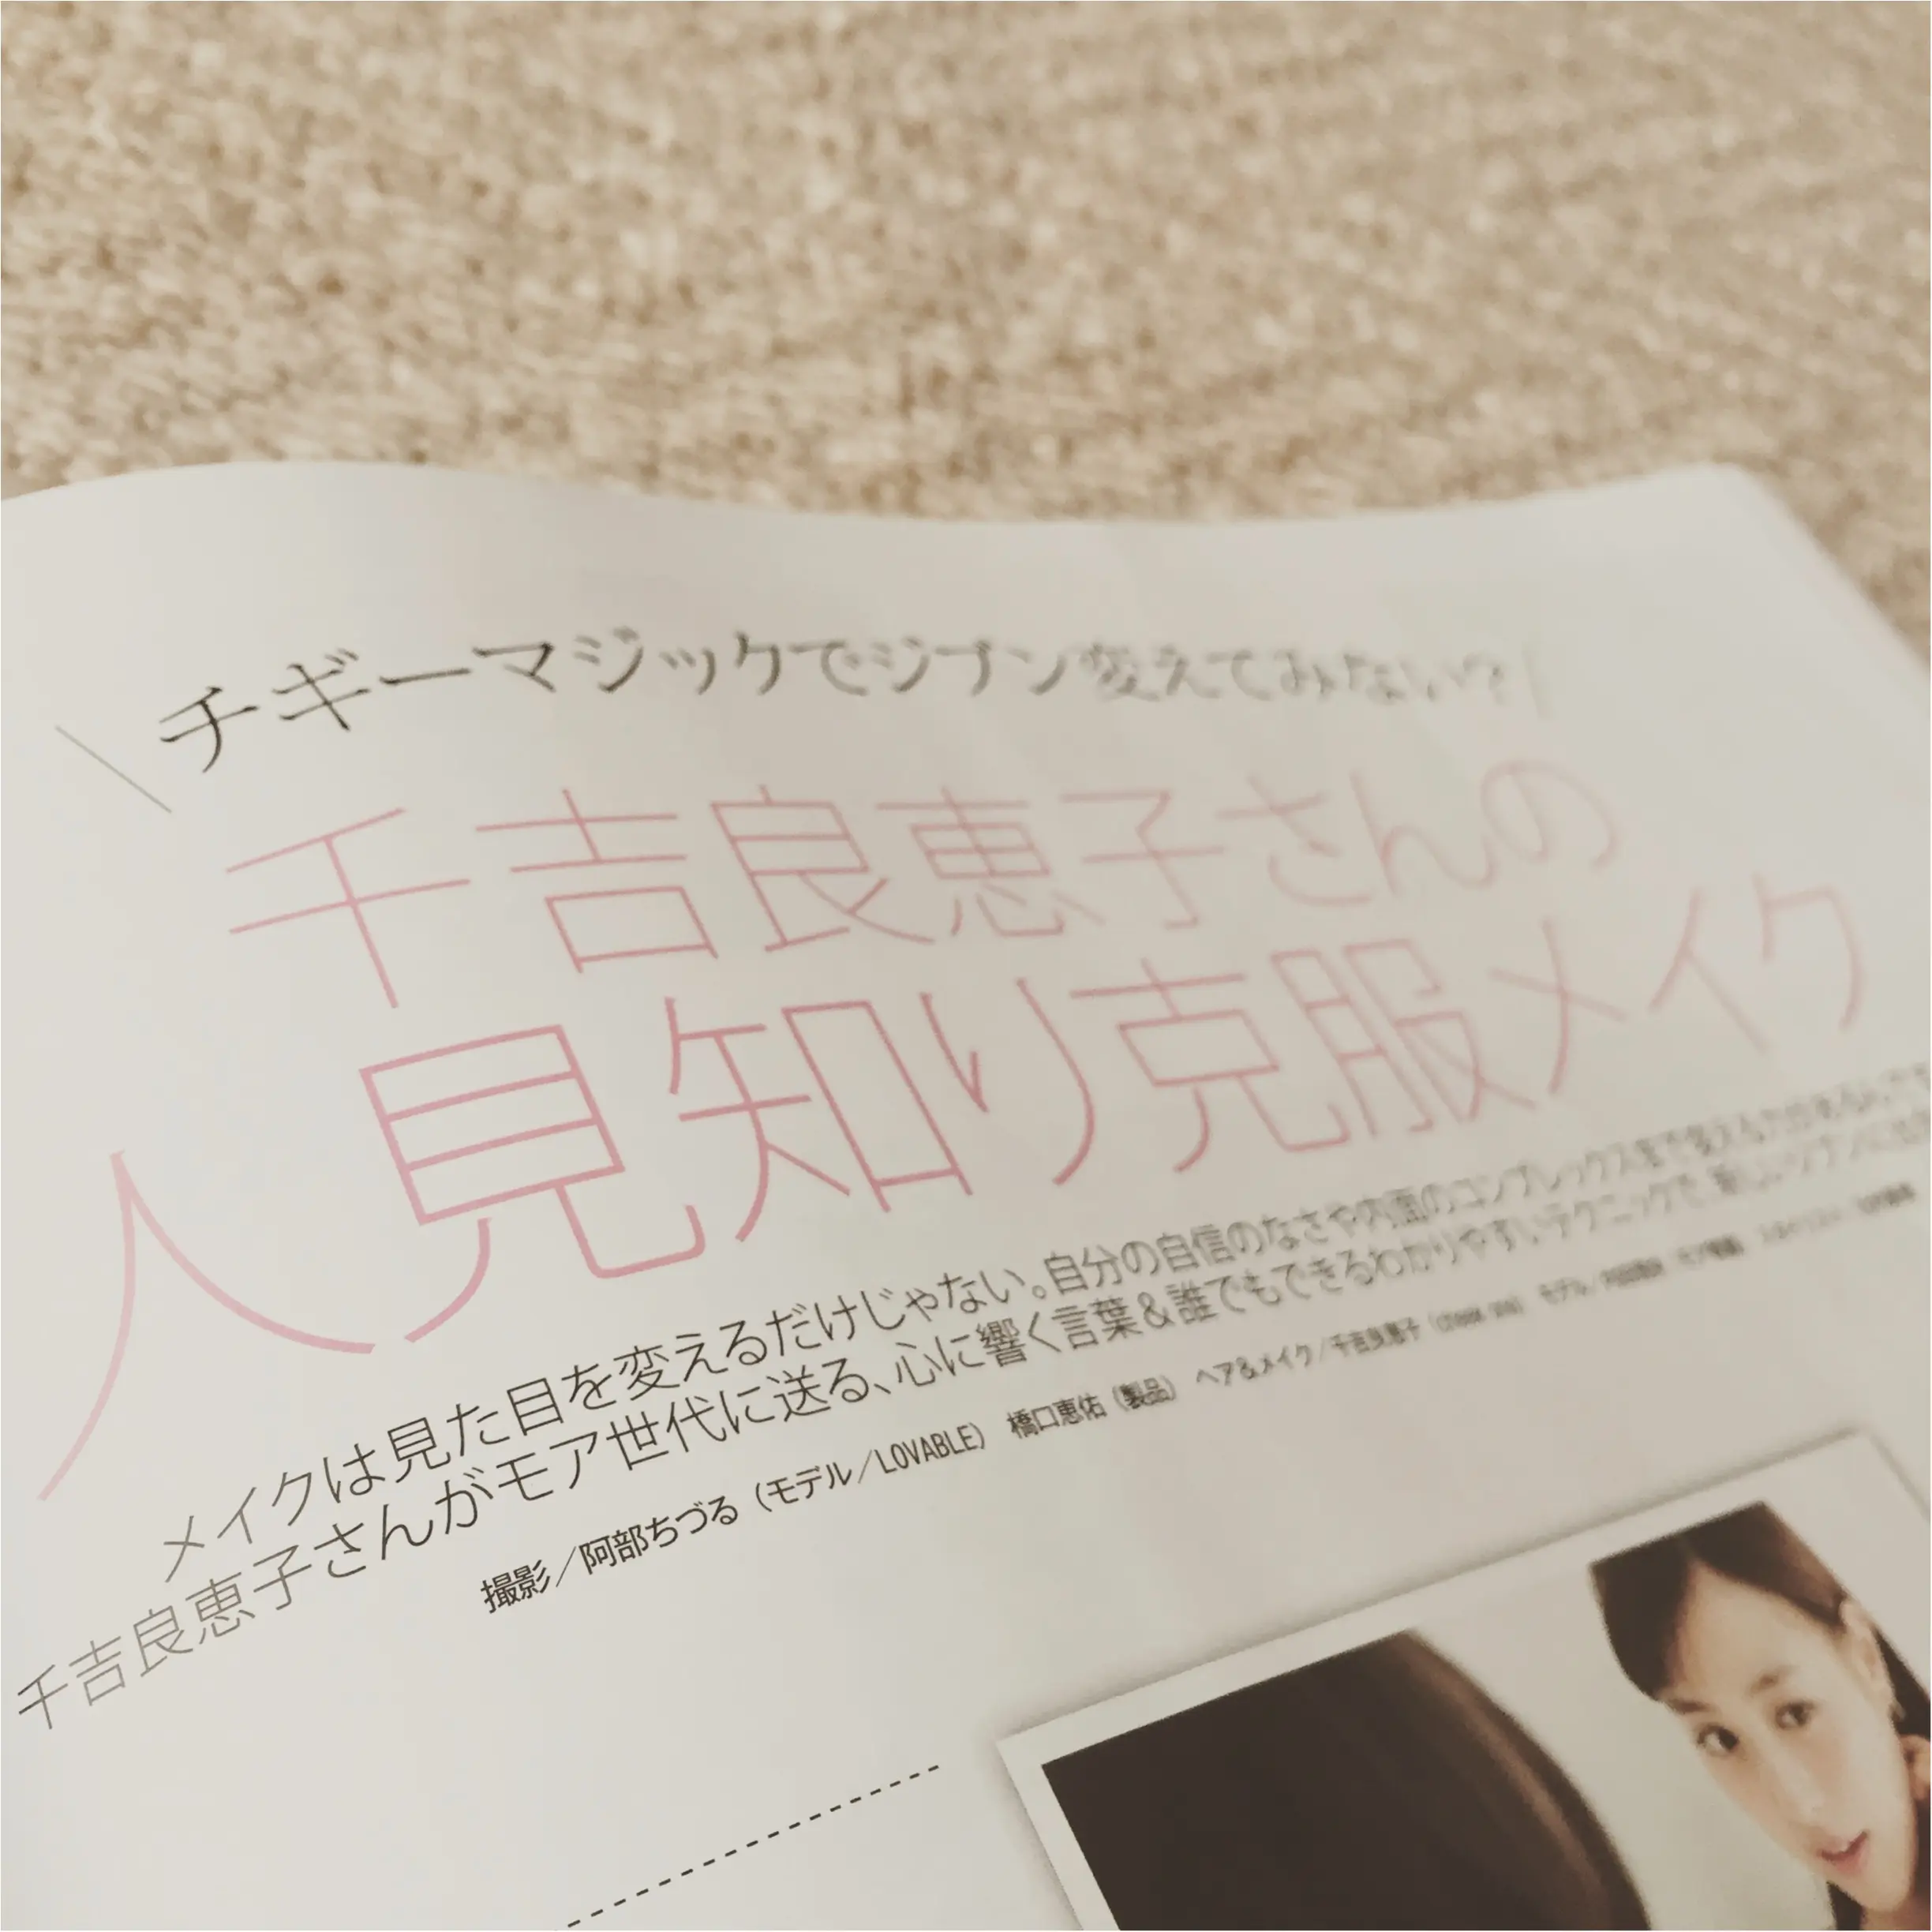 チギーマジックでジブン変えてみない?
千吉良恵子さんの
人見知り克服メイク
メイクは見た目を変えるだけじゃない。自分の自信のなさや内面のコンプレックスまで変える力があるんです
千吉良恵子さんがモア世代に送る、心に響く言葉&誰でもできるわかりやすいテクニックで、新しいジブンに
撮影/阿部ちづる(モデル/LOVABLE) 橋口恵佑(製品) ヘア&メイク/千吉良恵子 モデル/